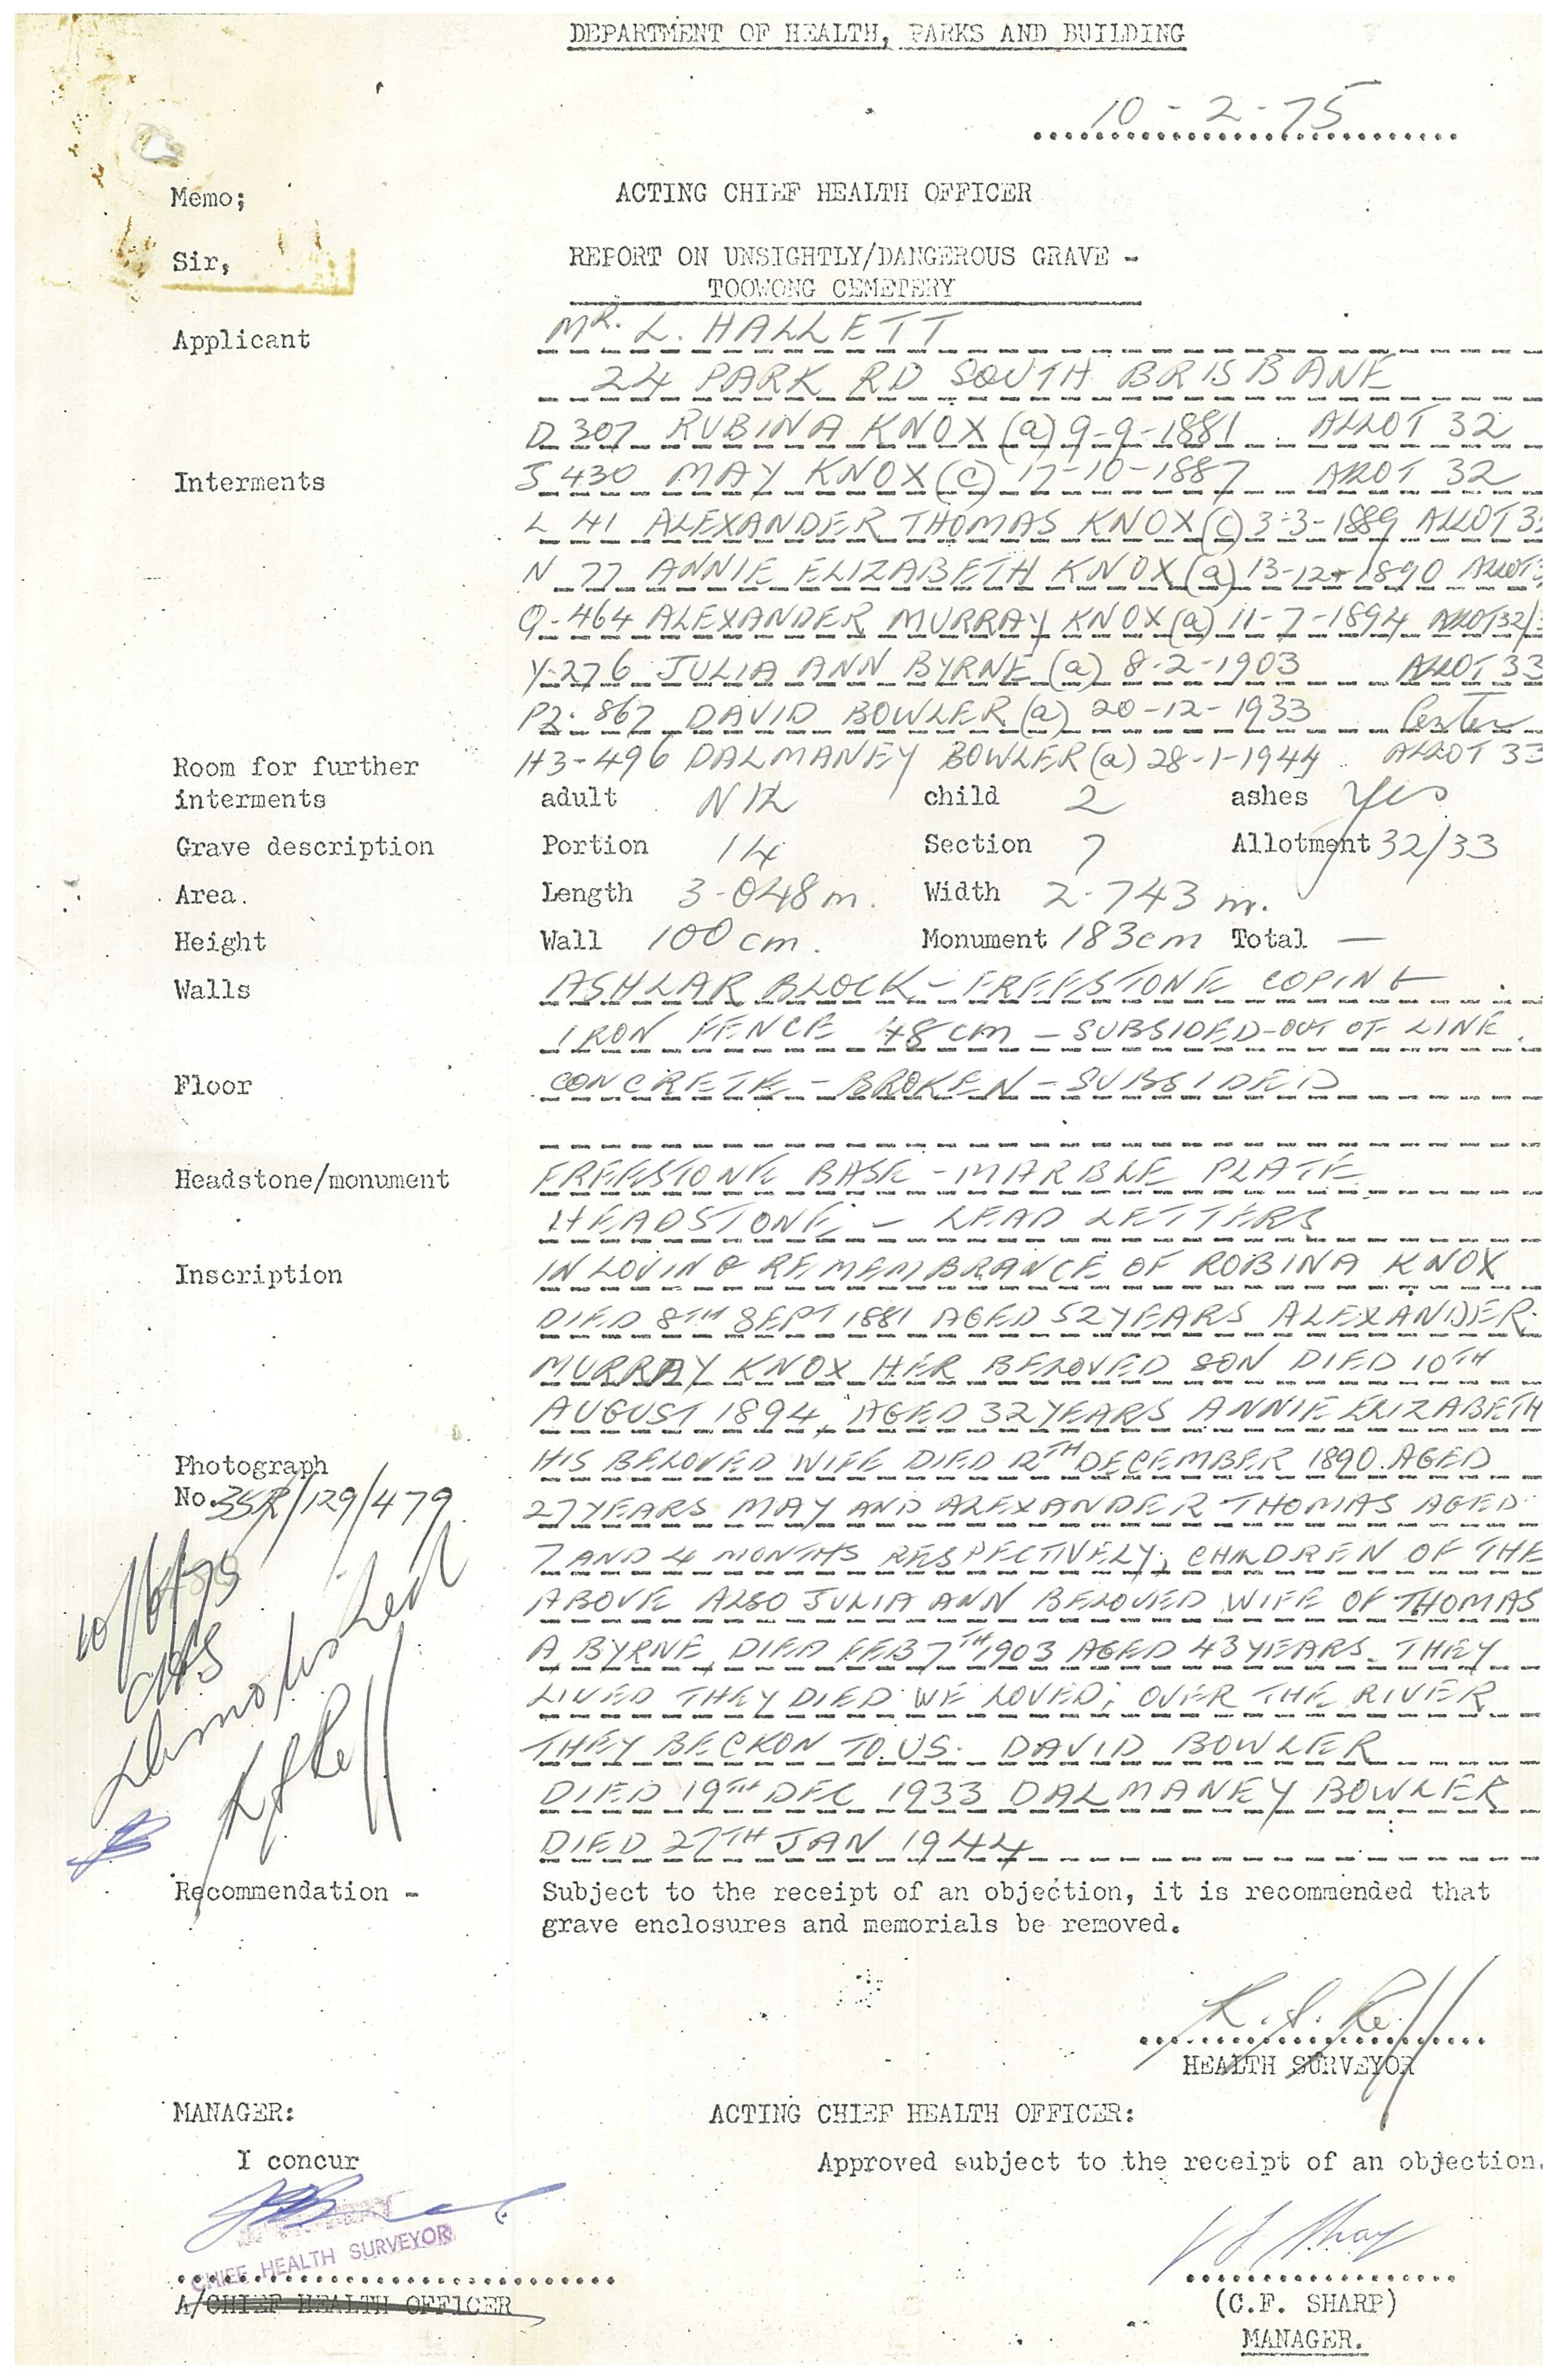 DEPARTMENT OF HEALTH, PARKS AND BUILDING
10-2-75
Memo; ACTING CHIEF HEALTH OFFICER
Sir, REPORT ON UNSIGHTLY/DANGEROUS GRAVE -
TOOWONG CEMETERY
Applicant MR. L. HALLETT
24 PARK RD SOUTH BRISBANE
D 307 RUBINA KNOX (a) 9-9-1881 ALLOT 32
Interments J 430 MAY KNOX (c) 17-10-1887 ALLOT 32
L 41 ALEXANDER THOMAS KNOX (c) 3-3-1889 ALLOT 3
N 77 ANNIE ELIZABETH KNOX (a) 13-12-1890 ALLOT 3
Q-464 ALEXANDER MURRAY KNOX (a) 11-7-1894 ALLOT 32/
Y-276 JULIA ANN BYRNE (a) 8-2-1903 ALLOT 33
P2-867 DAVID BOWLER (a) 20-12-1933 Center
H3-496 DALMANEY BOWLER (a) 28-1-1944 ALLOT 33
Room for further
interments adult NIL child 2 ashes Yes
Grave description Portion 14 Section 7 Allotment 32/33
Area. Length 3.048m. Width 2.743 m.
Height Wall 100 cm. Monument 183cm Total —
Walls ASHLAR BLOCK - FREESTONE COPING
IRON FENCE 48 cm - SUBSIDED-OUT OF LINE.
Floor CONCRETE - BROKEN - SUBSIDED
Headstone/monument FREESTONE BASE - MARBLE PLATE
HEADSTONE - LEAD LETTERS
Inscription IN LOVING REMEMBRANCE OF ROBINA KNOX
DIED 8TH SEPT 1881 AGED 52 YEARS ALEXANDER
MURRAY KNOX HER BELOVED SON DIED 10TH
AUGUST 1894, AGED 32 YEARS ANNIE ELIZABETH
HIS BELOVED WIFE DIED 12TH DECEMBER 1890. AGED
27 YEARS MAY AND ALEXANDER THOMAS AGED
7 AND 4 MONTHS RESPECTIVELY, CHILDREN OF THE
ABOVE ALSO JULIA ANN BELOVED WIFE OF THOMAS
A BYRNE, DIED FEB 7TH 1903 AGED 43 YEARS. THEY
LIVED THEY DIED WE LOVED; OVER THE RIVER
THEY BECKON TO US. DAVID BOWLER
DIED 19TH DEC 1933 DALMANEY BOWLER
DIED 27TH JAN 1944
Photograph
No. /129/479
10/6/75
Demolished
Recommendation - Subject to the receipt of an objection, it is recommended that
grave enclosures and memorials be removed.
HEALTH SURVEYOR
MANAGER: ACTING CHIEF HEALTH OFFICER:
I concur Approved subject to the receipt of an objection.
CHIEF HEALTH SURVEYOR
A/CHIEF HEALTH OFFICER
(C.F. SHARP)
MANAGER.